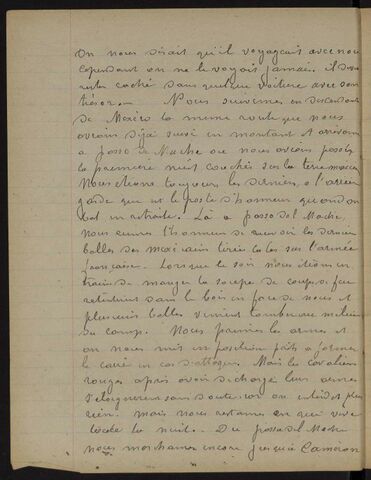 On nous disait qu'il voyageait avec nous
cependant on ne le voyait jamais. il devait
rester caché dans quelque voiture avec son
trésor. Nous suivimes en descendant
de Mexico la meme route que nous
avions déja suivi en montant et arrivâmes
a Passo de Mache ou nous avions passés
la première nuit couchés sur la terre mexicaine
Nous étions toujours les derniers a l'arrière
garde que est le poste d'honneur quand on
bat en retraite. Là a passo del Mache,
nous eumes l'honneur de recevoir les dernières
balles des mexicains tirées par eux sur l'armée
française. Lorsque le soir nous étions en
train de manger la soupe des coups de feu
retentirent dans le bois en face de nous et
plusieurs balles vinrent tomber au milieu
du camp. Nous primes les armes et
on nous mit en position prêts a former
le carré en cas d'attaque. Mais les cavaliers
rouges après avoir déchargé leurs armes
s'éloignèrent sans doute car on entendit plus
rien. mais nous restames en qui vive
toute la nuit. Du passo del Mache
nous marchames encore jusqu'à Cameron